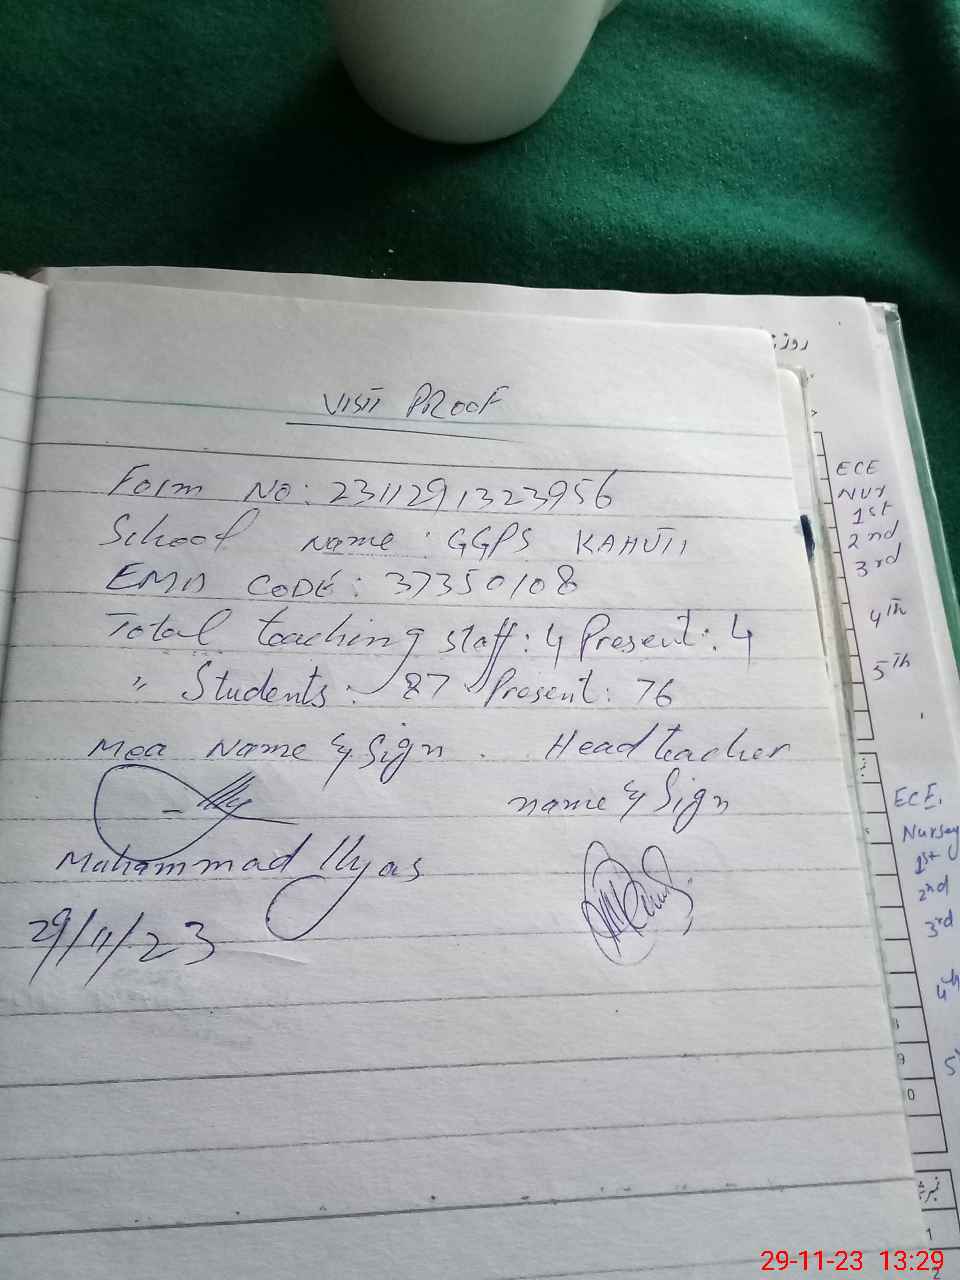 VISIT PROOF
Form No: 2311291323956
School name: GGPS KAHUTI
EMIS CODE: 37350108
Total teaching staff: 4 Present: 4
〃 Students: 87 Present: 76
Mea Name & Sign. Head teacher
name & Sign
Muhammad Ilyas
29/11/23
روز
ECE
Nur
1st
2nd
3rd
4th
5th
ECE.
Nursey
1st
2nd
3rd
4th
9
0
1
2
29-11-23 13:29